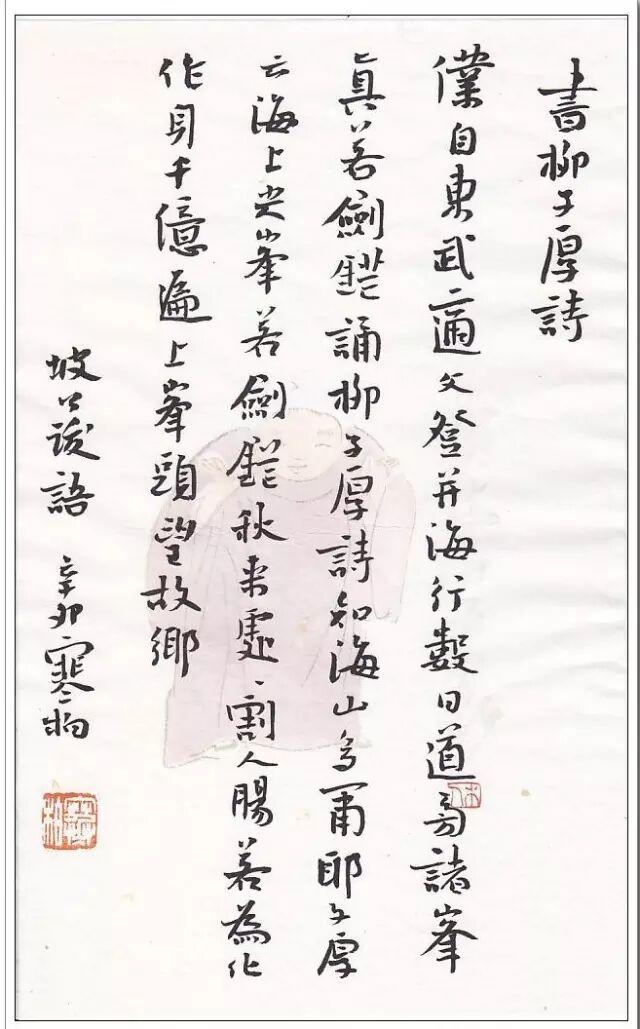 書柳子厚詩
僕自東武適文登并海行數日道旁諸峯
眞若劍鋩誦柳子厚詩知海山多爾耶子厚
云海上尖峯若劍鋩秋来處、割人腸若為化
作身千億遍上峯頭望故鄉
坡公跋語 辛卯寒柏